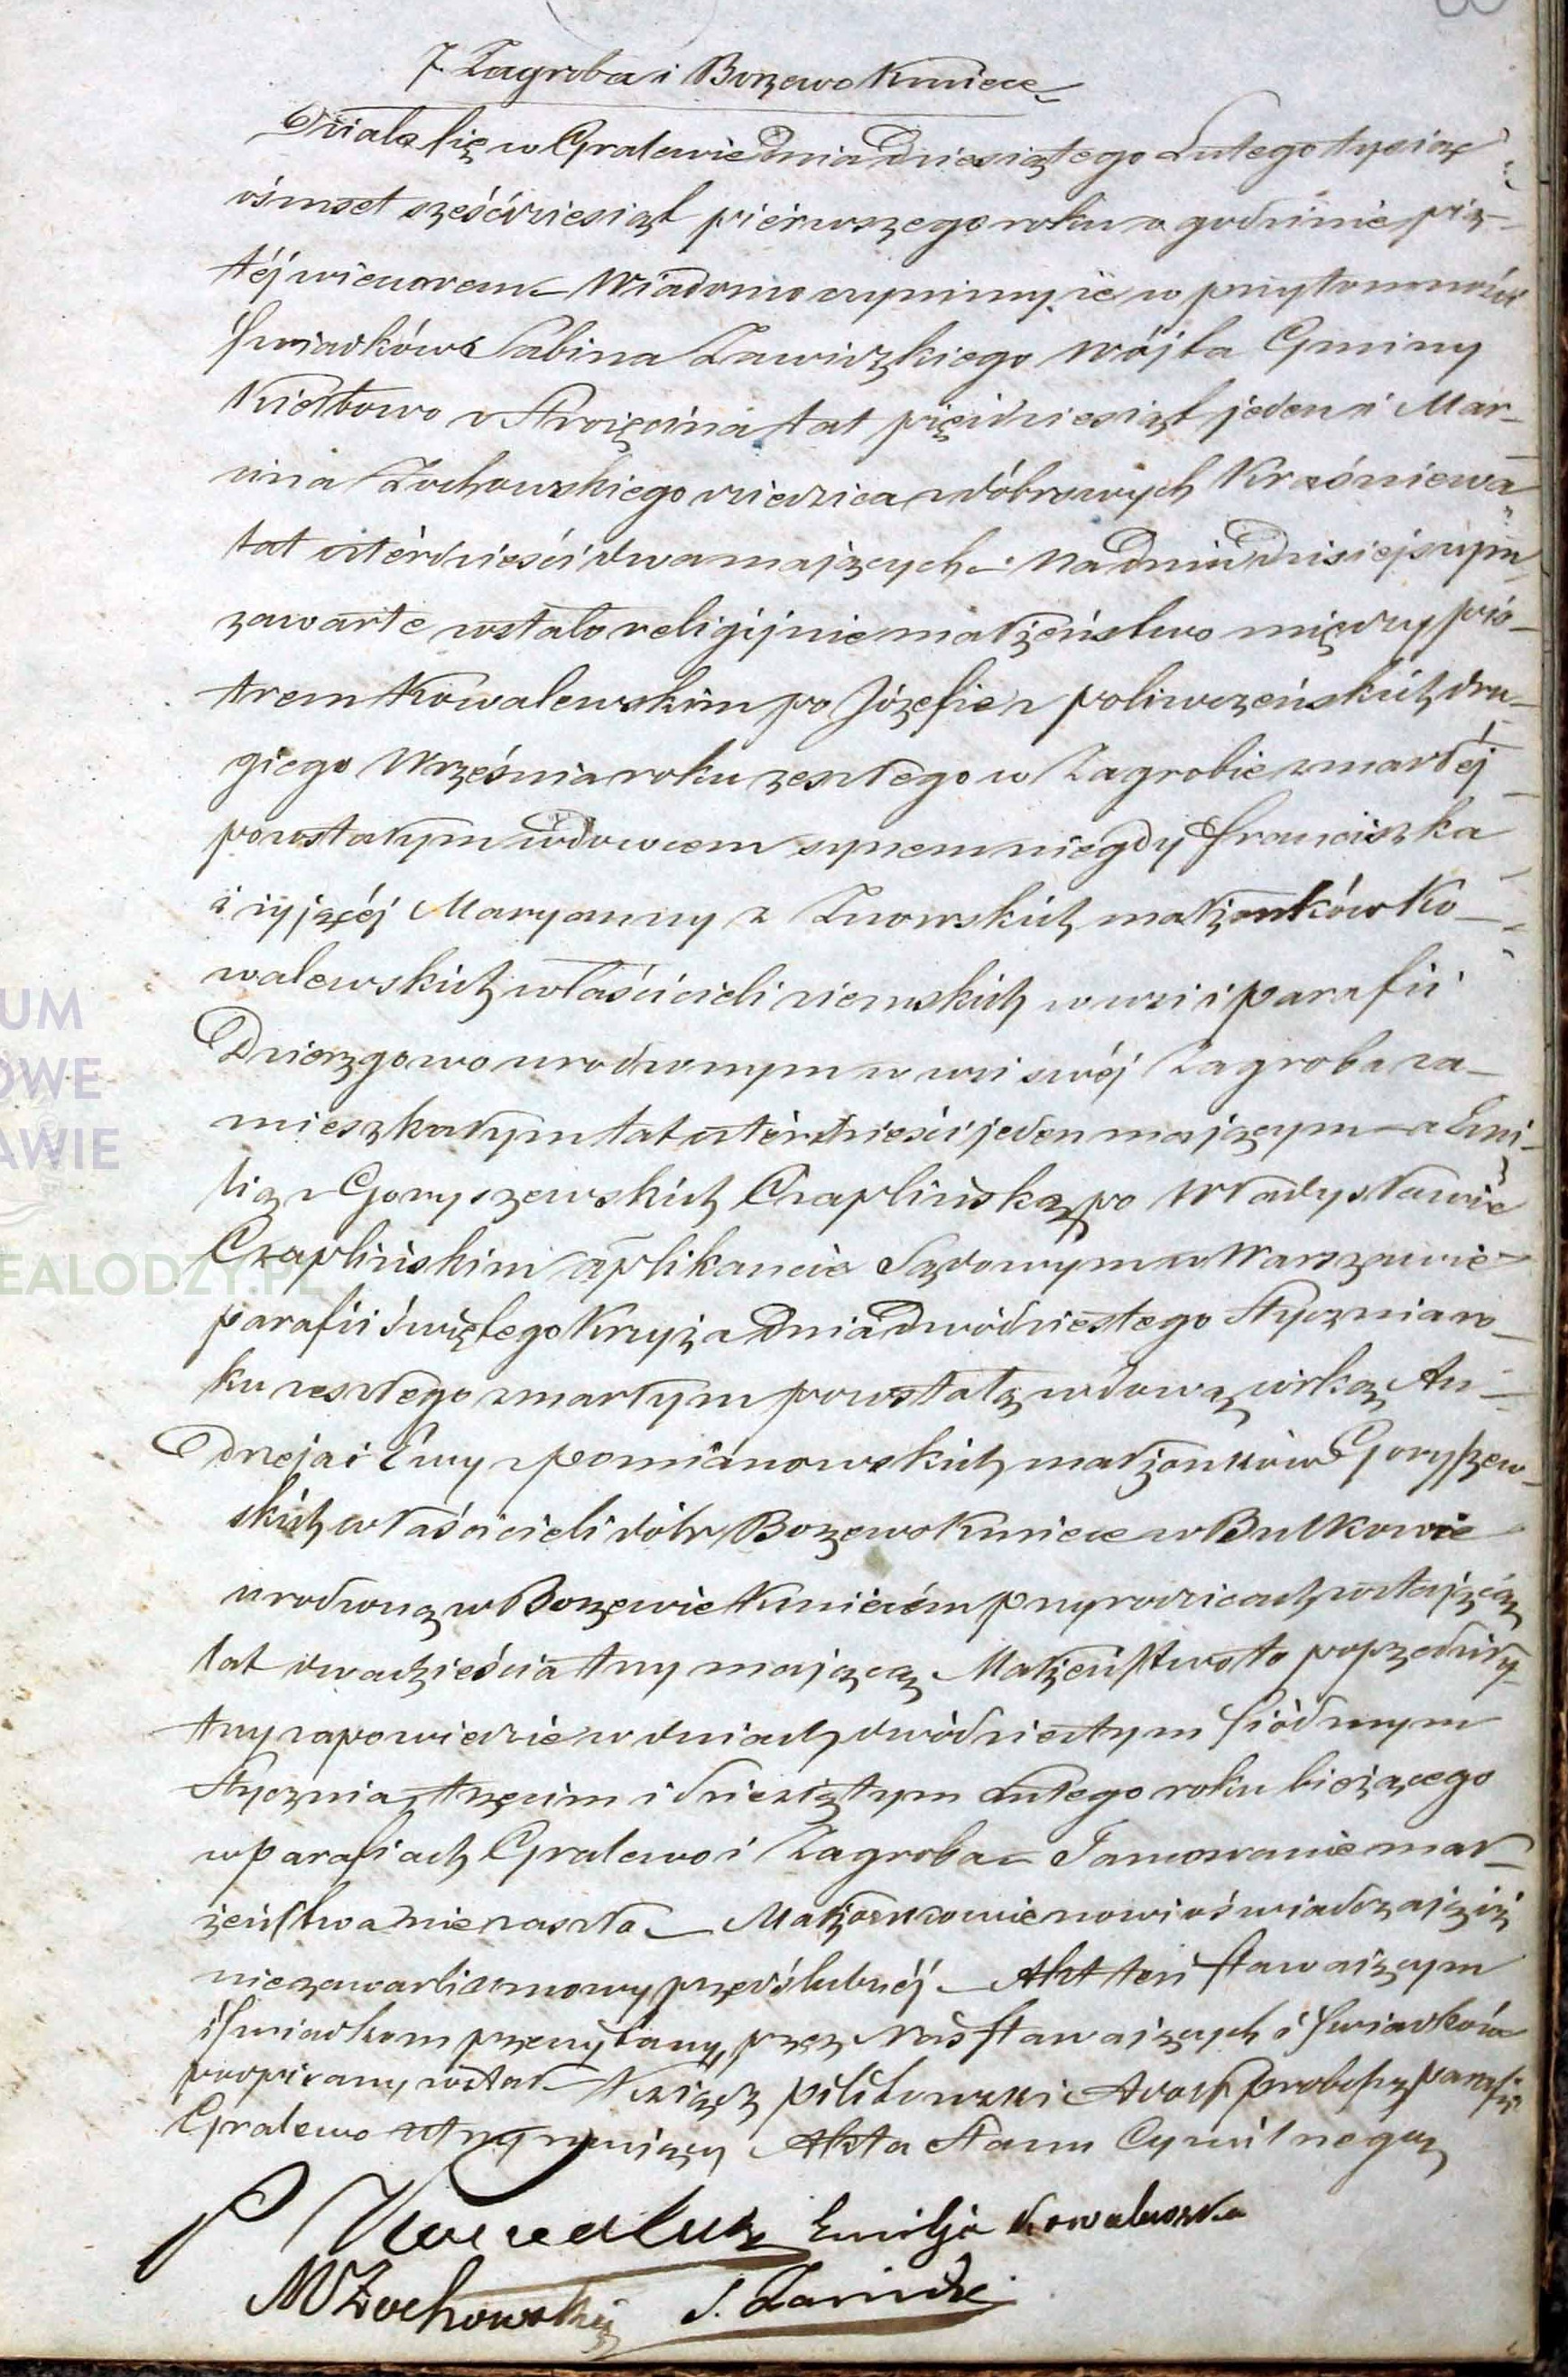 7. Zagroba i Bozewo Kmiece
Działo się w Gralewie dnia Dziesiątego Lutego tysiąc
ośmset sześćdziesiąt piérwszego roku o godzinie pią-
téj wieczorem – Wiadomo czynimy, że w przytomności
świadków Sabina Zawidzkiego Wójta Gminy
Kiełbowo z Strozięcina lat pięćdziesiąt jeden i Mar-
cina Żochowskiego dziedzica dóbr owych Kraśniewa
lat czterdzieści dwa mających – Na dniu dzisiejszym
zawarte zostało religijnie małżeństwo między Pio-
trem Kowalewskim po Józefie z Poliwczeńskich dru-
giego Września roku zeszłego w Zagrobie zmarłéj
pozostałym wdowcem synem niegdy Franciszka
i żyjącéj Maryanny z Żnowskich małżonków Ko-
walewskich właścicieli ziemskich w wsi i parafii
Dzierzgowo urodzonym w wsi swéj Zagroba za-
mieszkałym lat czterdzieści jeden mającym – a Emi-
lią z Goryszewskich Czaplińską po Władysławie
Czaplińskim aplikancie Sądowym w Warszawie
parafii świętego Krzyża Dnia Dwódziestego Stycznia ro-
ku zeszłego zmarłym pozostałą wdową, córką An-
drzeja i Ewy z Pomianowskich małżonków Goryszew-
skich właścicieli dóbr Bozewo Kmiece w Bulkowie
urodzoną w Bozewie Kmieciém przy rodzicach zostającą
lat dwadzieścia trzy mającą. Małżeństwo to poprzedziły
trzy zapowiedzie w dniach dwódziestym siódmym
Stycznia, trzecim i dziesiątym Lutego roku bieżącego
w parafiach Gralewo i Zagroba – Tamowanie mał-
żeństwa nie zaszło – Małżonkowie nowi oświadczają iż
nie zawarli umowy przedślubnéj – Akt ten stawającym
i świadkom przeczytany, przez Nas stawających i świadków
podpisany został – Ksiądz Pilitowski Adolf proboszcz parafii
Gralewo utrzymujący Akta Stanu Cywilnego
P Kowalewski Emilja Kowalewska
M Żochowski S. Zawidzki